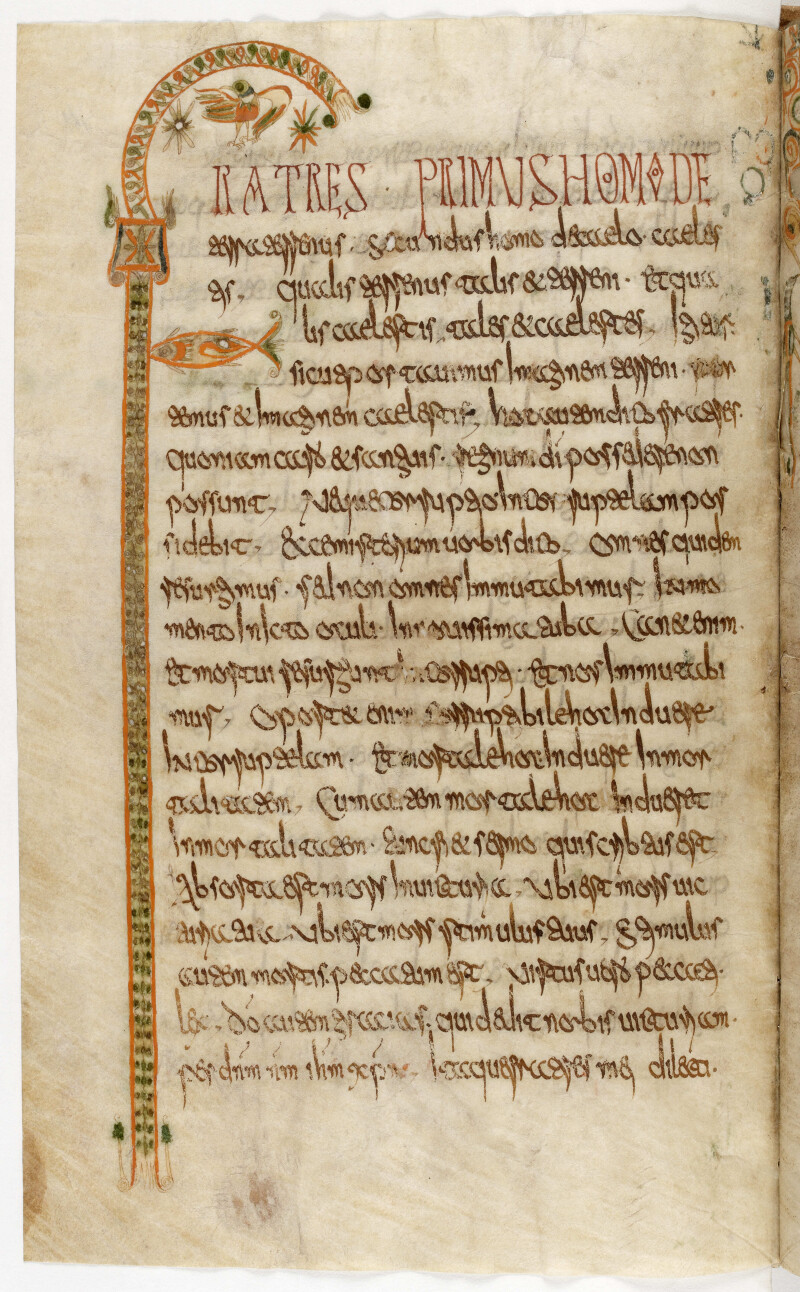 FRATRES · PRIMUS HOMO DE
terra terrenus · Secundus homo de caelo · caeles
tis, qualis terrenus talis & terreni · Et qua
lis caelestis, tales & caelestes, Igitur
sicut portauimus Imaginem terreni · por
temus & Imaginem caelestis, hoc autem dico fratres ·
quoniam caro & sanguis · regnum di possidere non
possunt, Neque corruptio Incorruptelam pos
sidebit, Ecce misterium uobis dico, Omnes quidem
resurgimus · sed non omnes Immutabimur, In mo
mento In Icto oculi · In nouissima tuba, Can& enim ·
Et mortui resurgent Incorrupti · Et nos Immutabi
mur, Oport& enim corruptibile hoc Induere
Incorruptelam · Et mortale hoc Induere Inmor
talitatem, Cum autem mortale hoc Induerit
Inmortalitatem · tunc fi& sermo qui scribtus est
Absorta est mors In uictoria, Ubi est mors uic
toria tua, Ubi est mors stimulus tuus, Stimulus
autem mortis peccatum est, Uirtus uero pecca
lex, Do autem gracias, qui dedit nobis uictoriam ·
per dnm nm ihm xpm Itaque fratres mei dilecti ·